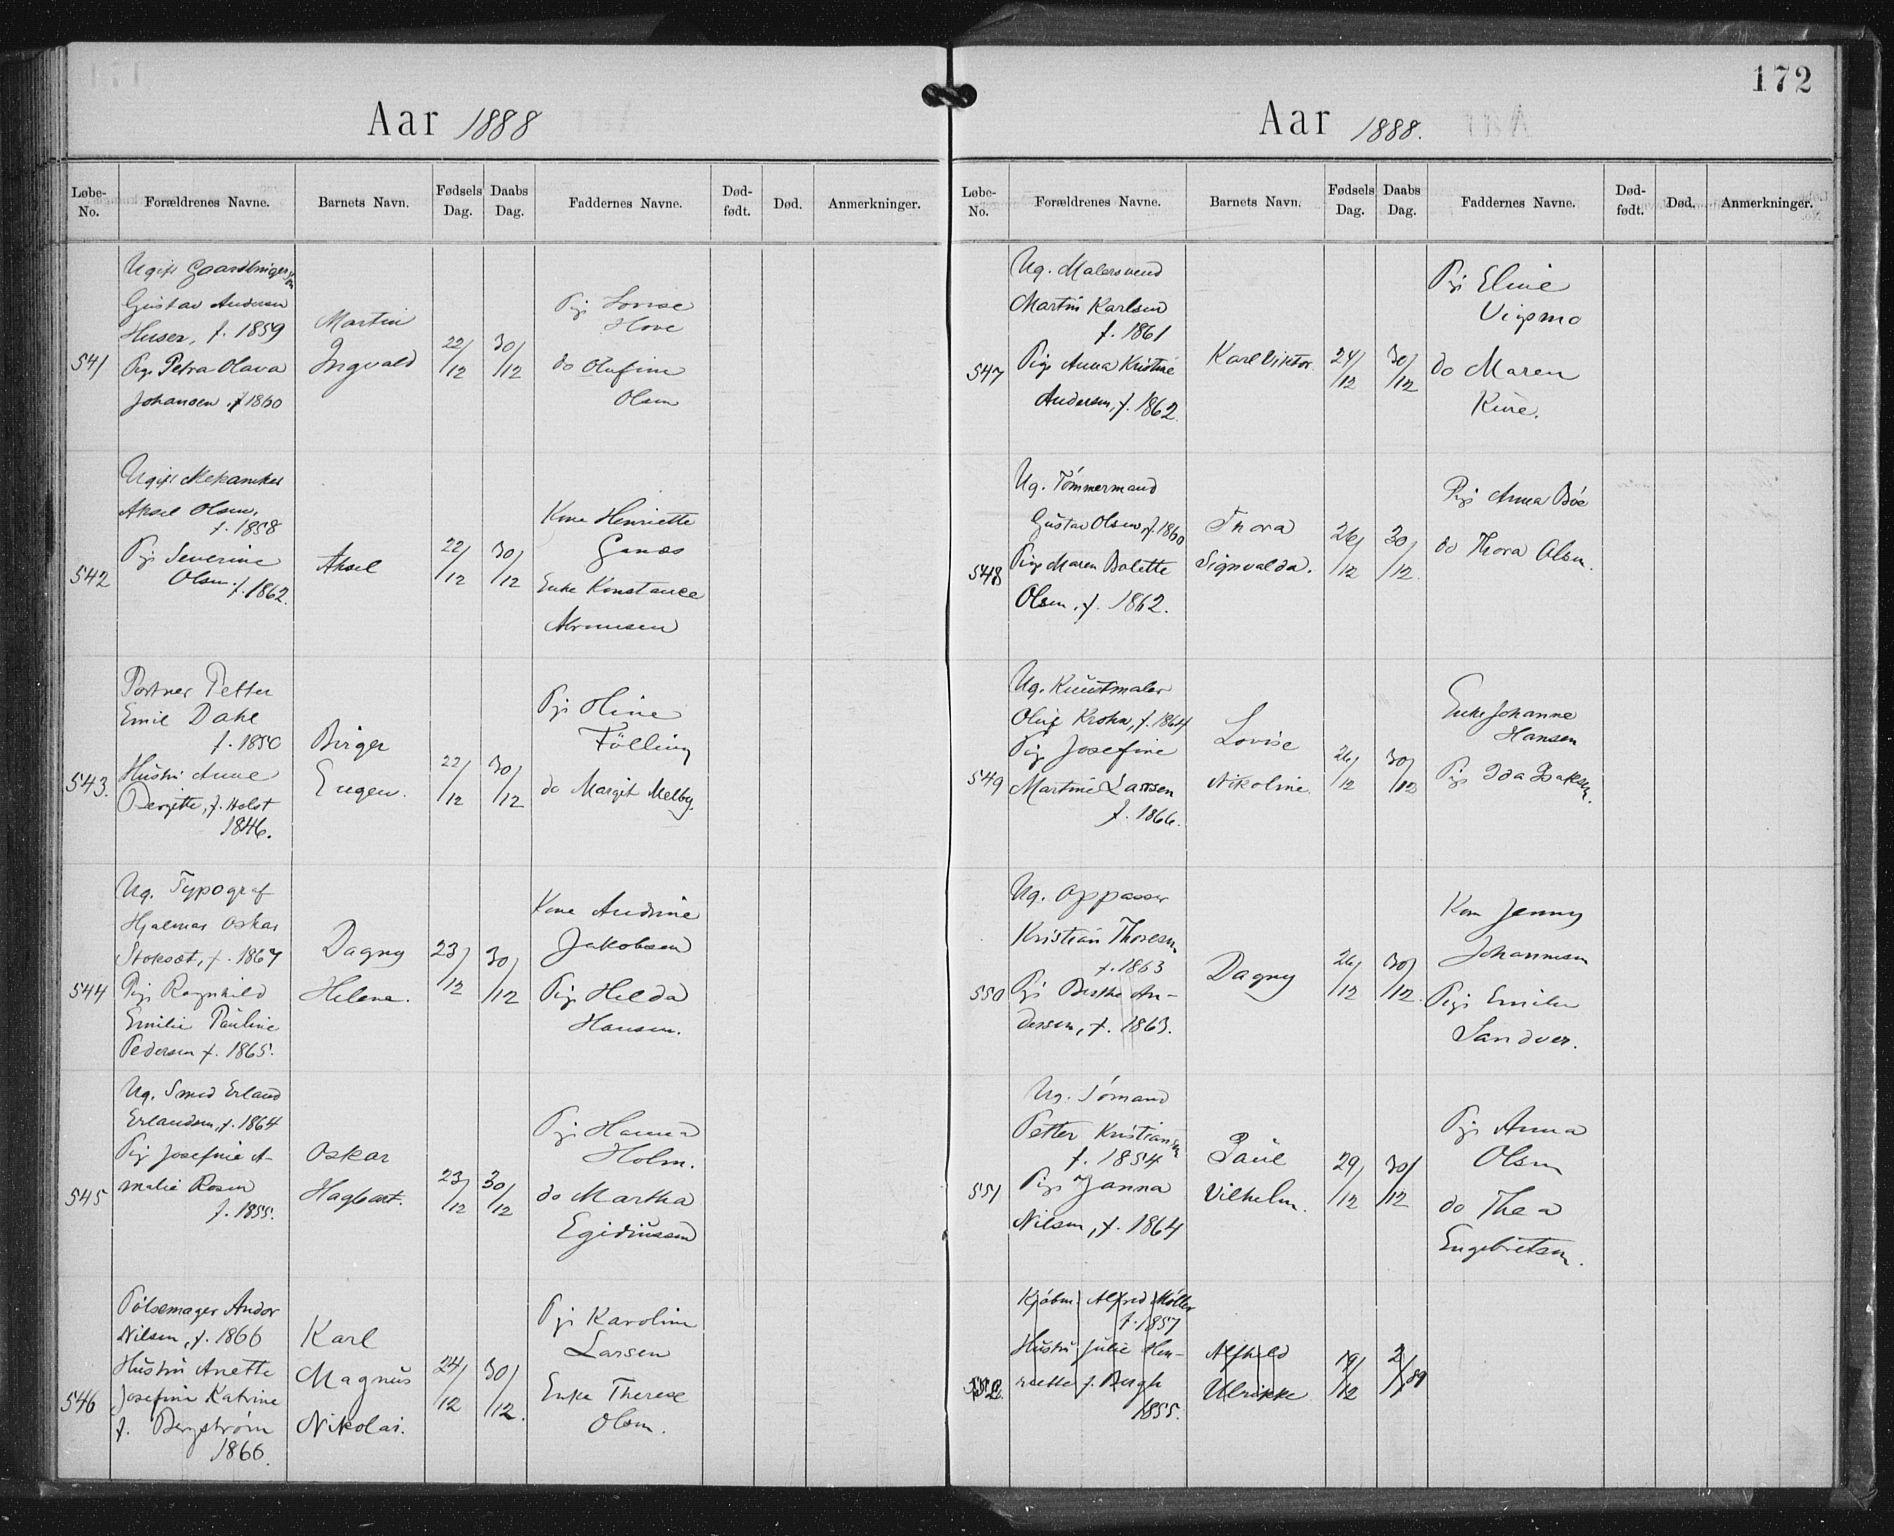 Aar 1888
Løbe-No. Forældrenes Navne. Barnets Navn. Fødsels Dag. Daabs Dag. Faddernes Navne. Død-født. Død. Anmerkninger.
541
Ugift
Gustav Andersen
Huser, f. 1859
Pige Petra Olava
Johansen, f. 1860
Martin
Ingvald
22/12
30/12
Pige Lovise
Hove
do Olufine
Olsen
542
Ugift Mekaniker
Aksel Olsen,
f. 1858
Pige Severine
Olsen. f. 1862.
Aksel
22/12
30/12
Kone Henriette
Enke Konstance
543.
Portner Petter
Emil Dahl
f. 1850
Hustru Anne
Bergitte, f. Holst
1846.
Birger
Eugen.
22/12
30/12
Pige Oline
Fölling
do Margit Melby.
544
Ug. Typograf
Hjalmar Oskar
f. 1867
Pige Ragnhild
Emilie Pauline
Pedersen f. 1865.
Dagny
Helene.
23/12
30/12
Kone Andrine
Jakobsen
Pige Hilda
Hansen.
545
Ug. Smed Erland
Erlandsen, f. 1864
Pige Josefine A-
malie Rosen
f. 1855.
Oskar
Hagbart.
23/12
30/12
Pige Hanna
Holm.
do Martha
Egidiussen
546
Pølsemager Andor
Nilsen, f. 1866
Hustru Anette
Josefine Katrine
f. Bergstrøm
1866.
Karl
Magnus
Nikolai.
24/12
30/12.
Pige Karoline
Larsen
Enke Therese
Olsen.
172
Aar 1888.
Løbe-No. Forældrenes Navne. Barnets Navn. Fødsels Dag. Daabs Dag. Faddernes Navne. Død-født. Død. Anmerkninger.
547
Ug. Malersvend
Martin Karlsen
f. 1861
Pige Anna Kristine
Andersen, f. 1862.
Karl Viktor.
24/12
30/12
Pige Eline
Vigsmo
do Maren
548
Ug. Tømmermand
Gustav Olsen, f. 1860
Pige Maren Bolette
Olsen, f. 1862.
Thora
Signvalda.
26/12
30/12.
Pige Anna Bøe
do Thora Olsen.
549
Ug. Kunstmaler
Oluf Krohn, f. 1864
Pige Josefine
Martine Larsen
f. 1866.
Lovise
Nikoline.
26/12
30/12
Enke Johanne
Hansen
Pige Ida Isaksen.
550
Ug. Oppasser
Kristian Thoresen
f. 1863
Pige Berthe An-
dersen, f. 1863.
Dagny
26/12
30/12.
Kone Jenny
Johannesen
Pige Emilie
Sandver.
551
Ug. Sømand
Petter Kristiansen
f. 1854
Pige Janna
Nilsen, f. 1864
Paul
Vilhelm.
29/12
30/12
Pige Anna
Olsen
do Thea
Engebretsen.
552
Kjøbm. Alfred Møller
f. 1857
Hustru Julie Hen-
riette f. Bergh
1855.
Alfhild
Ulrikke
19/12
2/1 89